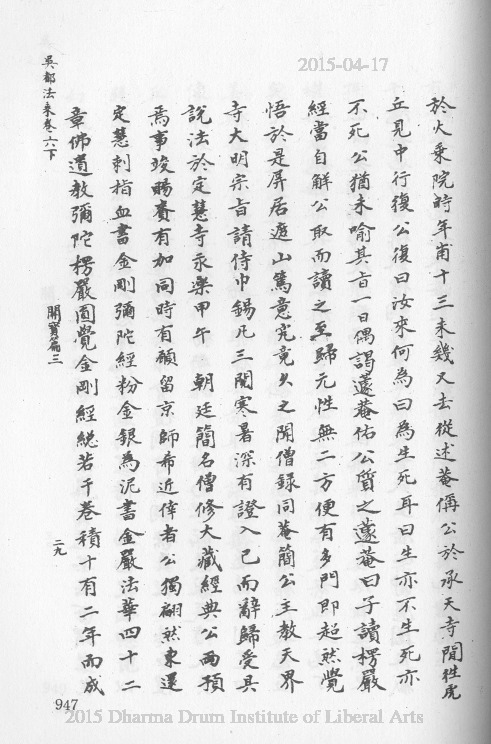 2015-04-17
吳都法乘卷六下
於大乘院時年甫十三未幾又去從述菴偁公於承天寺間往虎
丘見中行復公復曰汝來何為曰為生死耳曰生亦不生死亦
不死公猶未喻其旨一日偶謁蘧菴佑公質之蘧菴曰子讀楞嚴
經當自解公取而讀之至歸元性無二方便有多門即超然覺
悟於是屏居遊山篤意究竟久之聞僧錄司菴簡公主教天界
寺大明宗旨請侍巾錫凡三閱寒暑深有證入已而辭歸受具
說法於定慧寺永樂甲午 朝廷簡名僧修大藏經典公兩預
焉事竣賜賚有加同時有願留京師希近倖者公獨翩然東還
定慧刺指血書金剛彌陀經粉金銀為泥書金嚴法華四十二
章佛遺教彌陀楞嚴圓覺金剛經總若干卷積十有二年而成
開寶篇三
二九
947
2015 Dharma Drum Institute of Liberal Arts